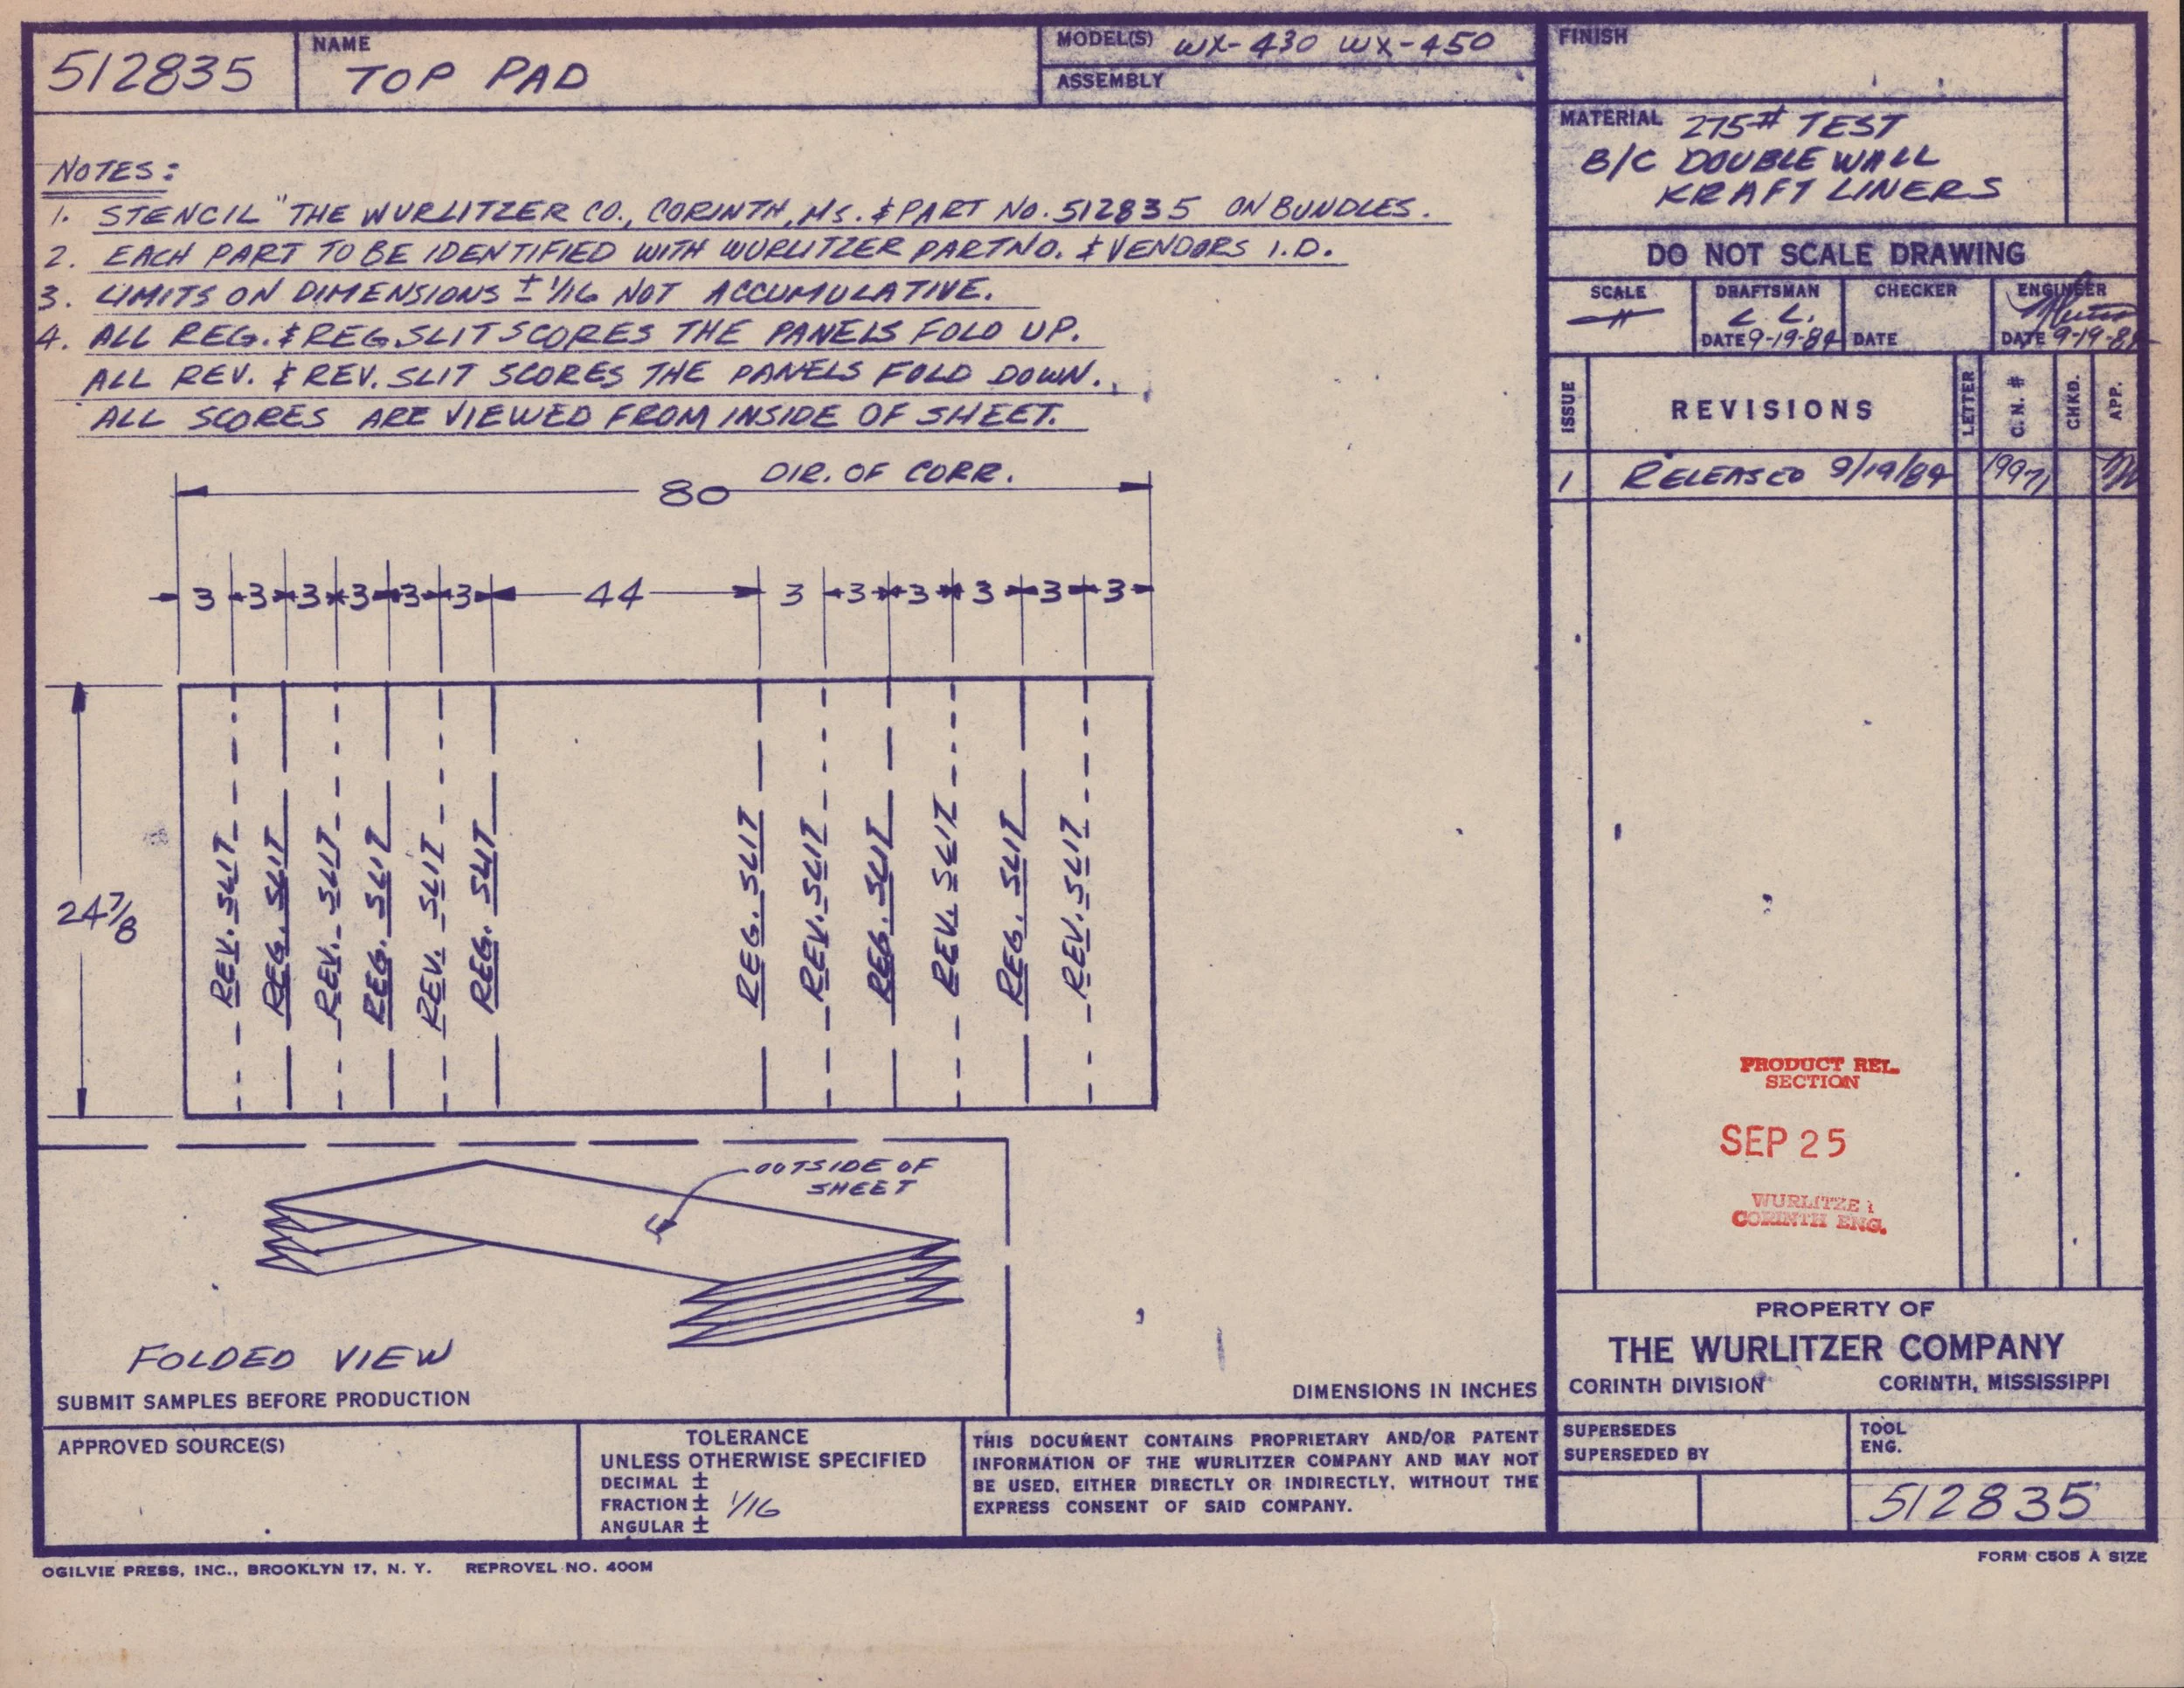 512835
NAME
TOP PAD
MODEL(S) WX-430 WX-450
ASSEMBLY
FINISH
MATERIAL 275# TEST
B/C DOUBLE WALL
KRAFT LINERS
DO NOT SCALE DRAWING
SCALE
DRAFTSMAN
L. L.
DATE 9-19-84
CHECKER
DATE
ENGINEER
DATE 9-19-84
ISSUE
REVISIONS
LETTER
C. N. #
CHKD.
APP.
1 RELEASED 9/19/84 19971
NOTES:
1. STENCIL "THE WURLITZER CO., CORINTH, MS. & PART NO. 512835 ON BUNDLES.
2. EACH PART TO BE IDENTIFIED WITH WURLITZER PART NO. & VENDORS I.D.
3. LIMITS ON DIMENSIONS ± 1/16 NOT ACCUMULATIVE.
4. ALL REG. & REG SLIT SCORES THE PANELS FOLD UP.
ALL REV. & REV. SLIT SCORES THE PANELS FOLD DOWN.
ALL SCORES ARE VIEWED FROM INSIDE OF SHEET.
80 DIR. OF CORR.
3 3 3 3 3 3 44 3 3 3 3 3 3
24 7/8
REV. SLIT
REG. SLIT
REV. SLIT
REG. SLIT
REV. SLIT
REG. SLIT
REG. SLIT
REV. SLIT
REG. SLIT
REV. SLIT
REG. SLIT
REV. SLIT
OUTSIDE OF
SHEET
FOLDED VIEW
SUBMIT SAMPLES BEFORE PRODUCTION
DIMENSIONS IN INCHES
PRODUCT REL.
SECTION
SEP 25
WURLITZE
CORINTH ENG.
PROPERTY OF
THE WURLITZER COMPANY
CORINTH DIVISION CORINTH, MISSISSIPPI
APPROVED SOURCE(S)
TOLERANCE
UNLESS OTHERWISE SPECIFIED
DECIMAL ±
FRACTION ± 1/16
ANGULAR ±
THIS DOCUMENT CONTAINS PROPRIETARY AND/OR PATENT
INFORMATION OF THE WURLITZER COMPANY AND MAY NOT
BE USED, EITHER DIRECTLY OR INDIRECTLY, WITHOUT THE
EXPRESS CONSENT OF SAID COMPANY.
SUPERSEDES
SUPERSEDED BY
TOOL
ENG.
512835
OGILVIE PRESS, INC., BROOKLYN 17, N. Y. REPROVEL NO. 400M
FORM C505 A SIZE